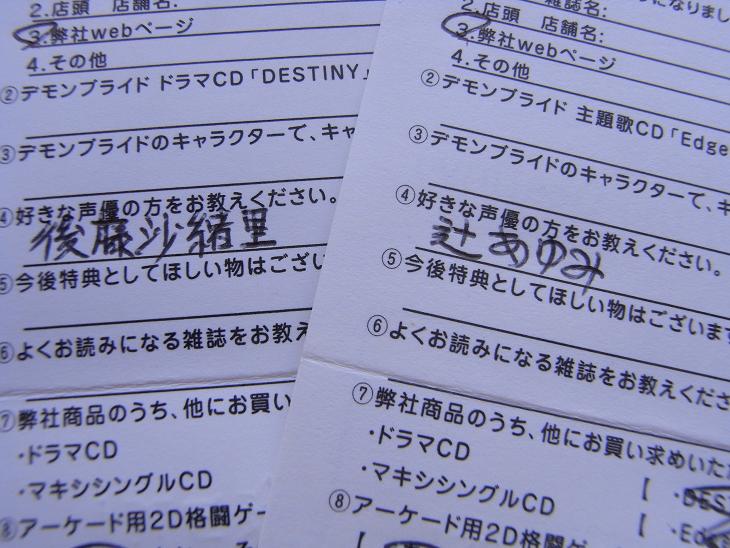 2.店頭 店舗名:
3.弊社webページ
4.その他
②デモンブライド ドラマCD「DESTINY」
③デモンブライドのキャラクターで、キャ
④好きな声優の方をお教えください。
後藤沙緒里
⑤今後特典としてほしい物はござい
⑥よくお読みになる雑誌をお教え
⑦弊社商品のうち、他にお買い
・ドラマCD
・マキシシングルCD
⑧アーケード用2D格闘ゲー
雑誌名:
になりまし
2.店頭 店舗名:
3.弊社webページ
4.その他
②デモンブライド 主題歌CD「Edge
③デモンブライドのキャラクターで、キ
④好きな声優の方をお教えください。
辻あゆみ
⑤今後特典としてほしい物はございます
⑥よくお読みになる雑誌をお教えくださ
⑦弊社商品のうち、他にお買い求めいた
・ドラマCD
[ ・DES
・マキシシングルCD
[ ・Ed
⑧アーケード用2D格闘ゲー